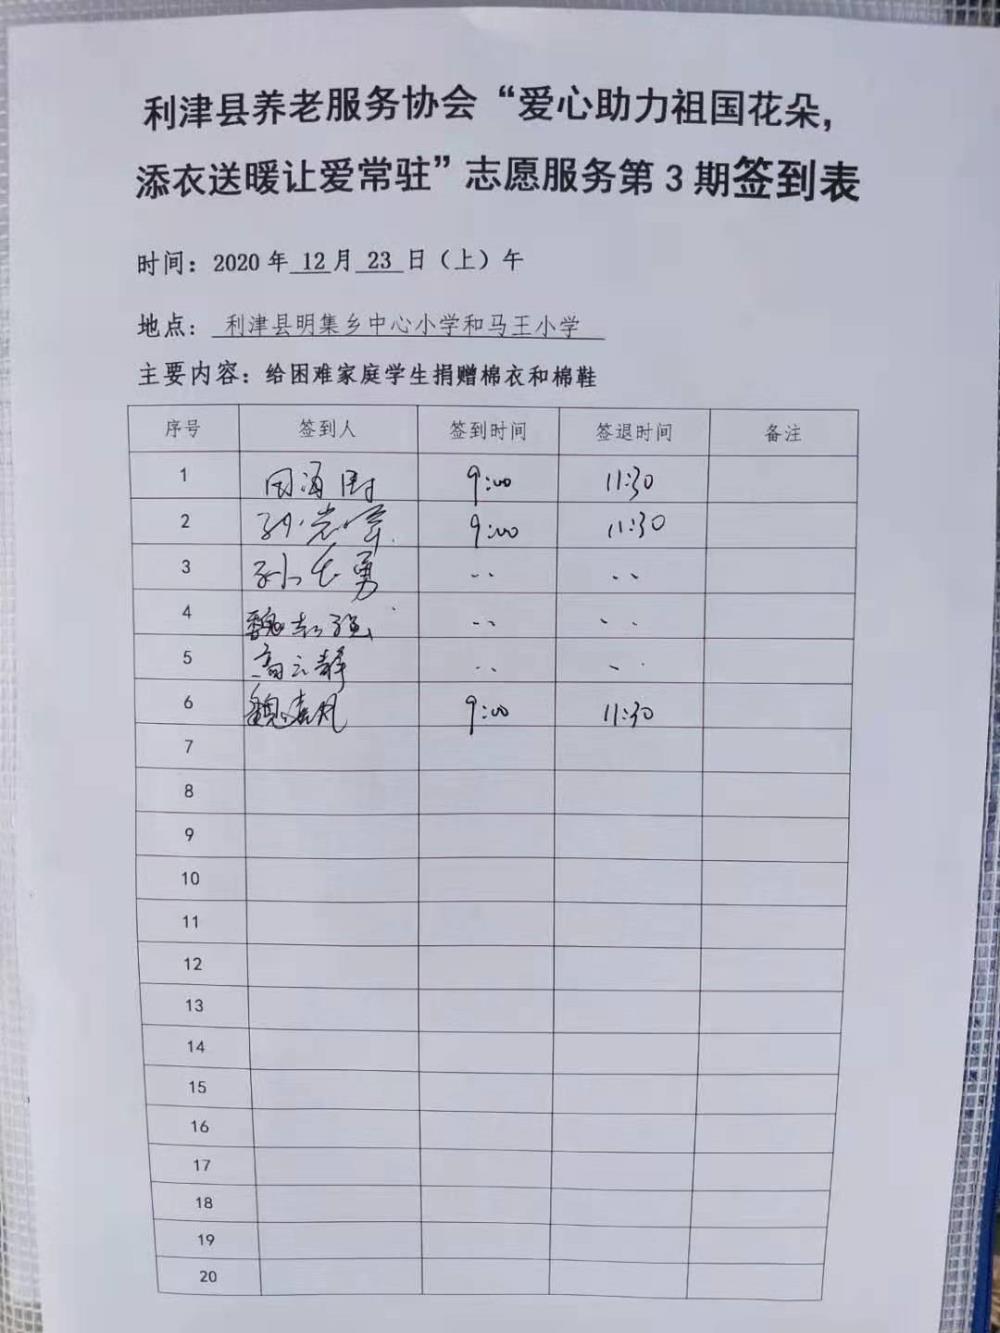 利津县养老服务协会“爱心助力祖国花朵,
添衣送暖让爱常驻”志愿服务第3期签到表
时间：2020年 12 月 23 日（上）午
地点： 利津县明集乡中心小学和马王小学
主要内容：给困难家庭学生捐赠棉衣和棉鞋
序号 签到人 签到时间 签退时间 备注
1 9:00 11:30
2 9:00 11:30
3 孙长勇 〃 〃
4 魏 强 〃 〃
5 高云静 〃 〃
6 魏春风 9:00 11:30
7
8
9
10
11
12
13
14
15
16
17
18
19
20